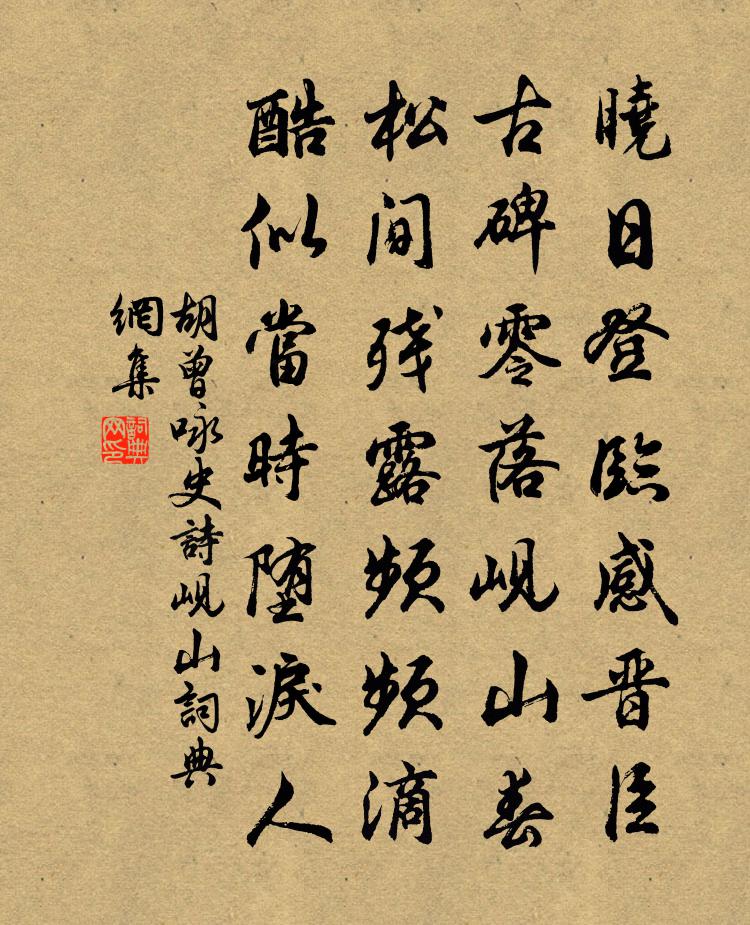 曉日登臨感晋臣
古碑零落峴山春
松間残露頻頻滴
酷似當時堕淚人
胡曾咏史詩峴山詞典
網集
詞典网印